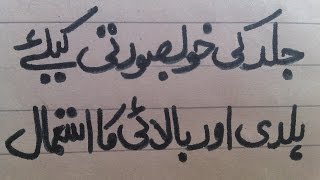 جلد کی خوبصورتی کیلئے
ہلدی اور بالائی کا استمال